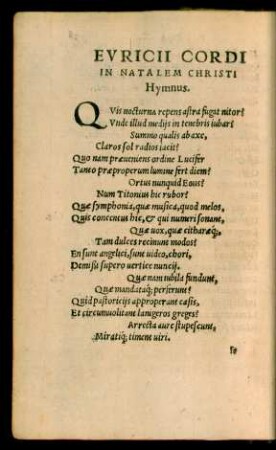 EVRICII CORDI
IN NATALEM CHRISTI
Hymnus.
QVis nocturna repens astra fugat nitor?
Vnde illud medijs in tenebris iubar?
Summo qualis ab axe,
Claros sol radios iacit?
Quo nam præueniens ordine Lucifer
Tanto præproperum lumine fert diem?
Ortus nunquid Eous?
Num Titonius hic rubor?
Quæ symphonia, quæ musica, quod melos,
Quis concentus hic, & qui numeri sonant,
Quæ uox, quæ citharæq;,
Tam dulces recinunt modos?
En sunt angelici, sunt uideo, chori,
Demissi supero uertice nuncij.
Quæ nam nubila fundunt,
Quæ mandataq; perferunt?
Quid pastoricijs approperant casis,
Et circumuolitant lanigeros greges?
Arrecta aure stupescunt,
Miratiq; timent uiri.